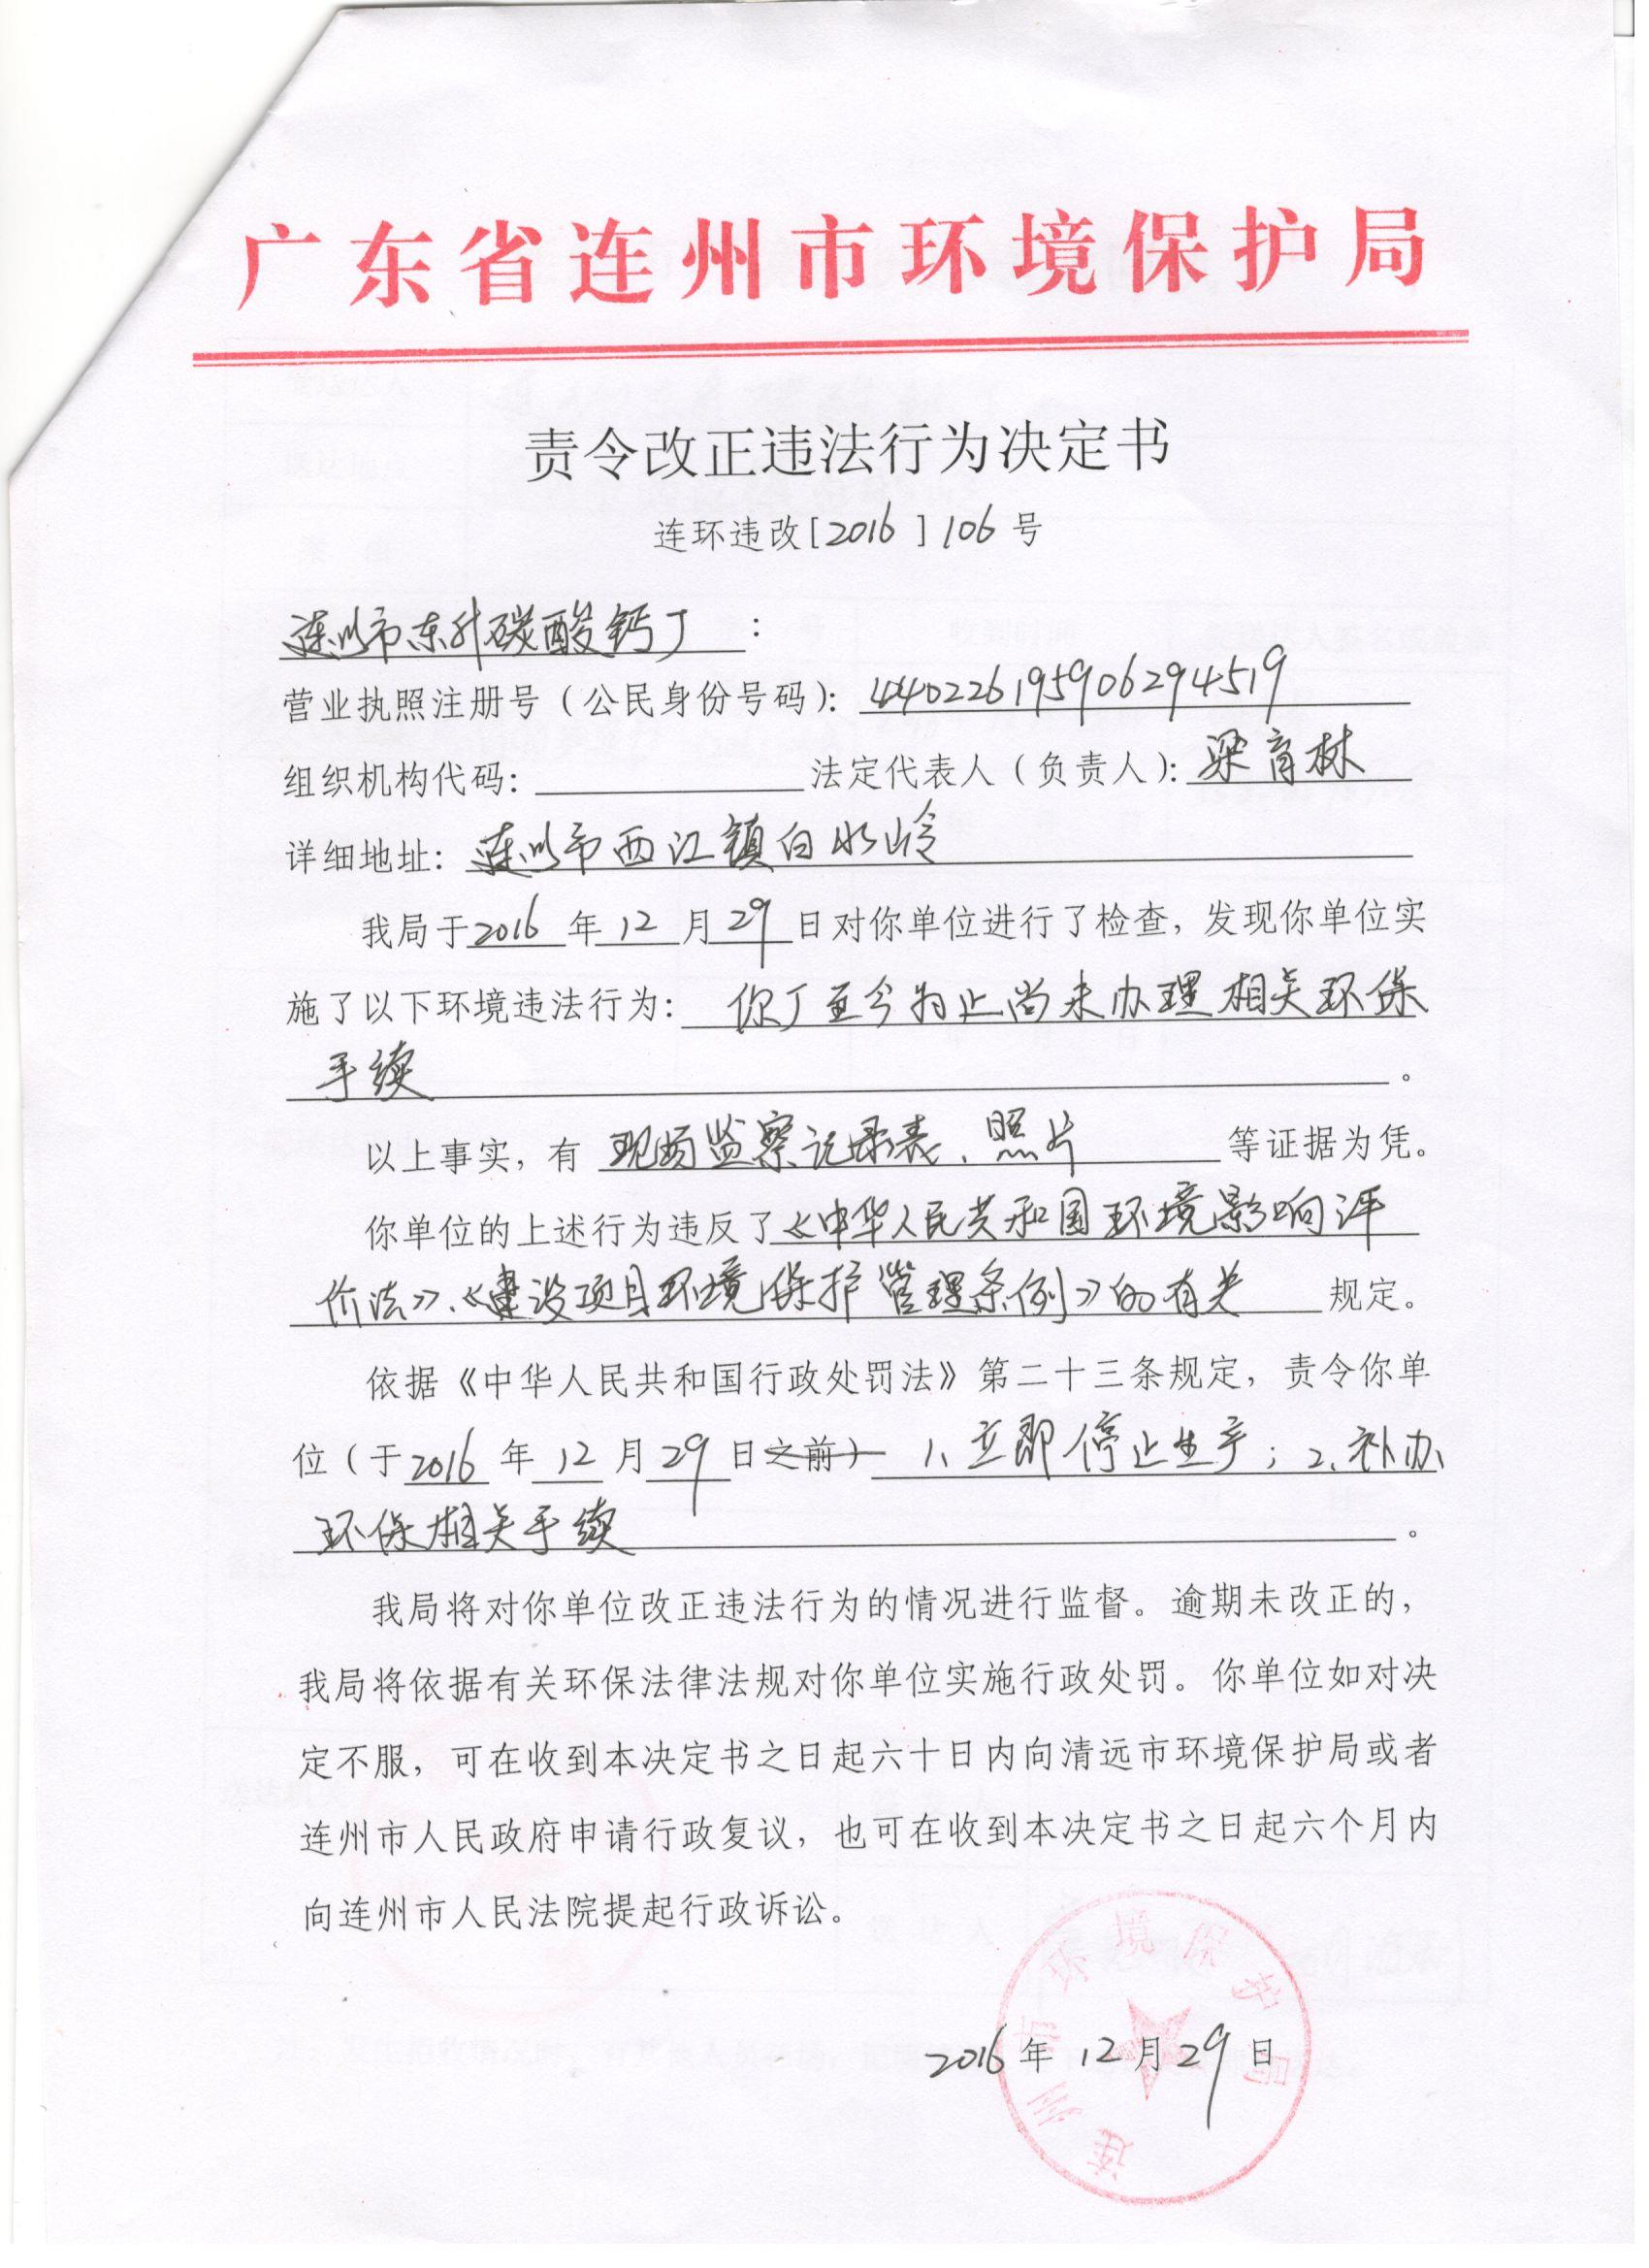 广东省连州市环境保护局
责令改正违法行为决定书
连环违改[2016]106号
连州市东升碳酸钙厂：
营业执照注册号（公民身份号码）：440226195906294519
组织机构代码：法定代表人（负责人）：梁育林
详细地址：连州市西江镇白水岭
我局于2016年12月29日对你单位进行了检查，发现你单位实
施了以下环境违法行为：你厂至今为止尚未办理相关环保
手续。
以上事实，有现场监察记录表、照片等证据为凭。
你单位的上述行为违反了《中华人民共和国环境影响评
价法》、《建设项目环境保护管理条例》的有关规定。
依据《中华人民共和国行政处罚法》第二十三条规定，责令你单
位（于2016年12月29日之前）1、立即停止生产；2、补办
环保相关手续。
我局将对你单位改正违法行为的情况进行监督。逾期未改正的，
我局将依据有关环保法律法规对你单位实施行政处罚。你单位如对决
定不服，可在收到本决定书之日起六十日内向清远市环境保护局或者
连州市人民政府申请行政复议，也可在收到本决定书之日起六个月内
向连州市人民法院提起行政诉讼。
连州市环境保护局
2016年12月29日